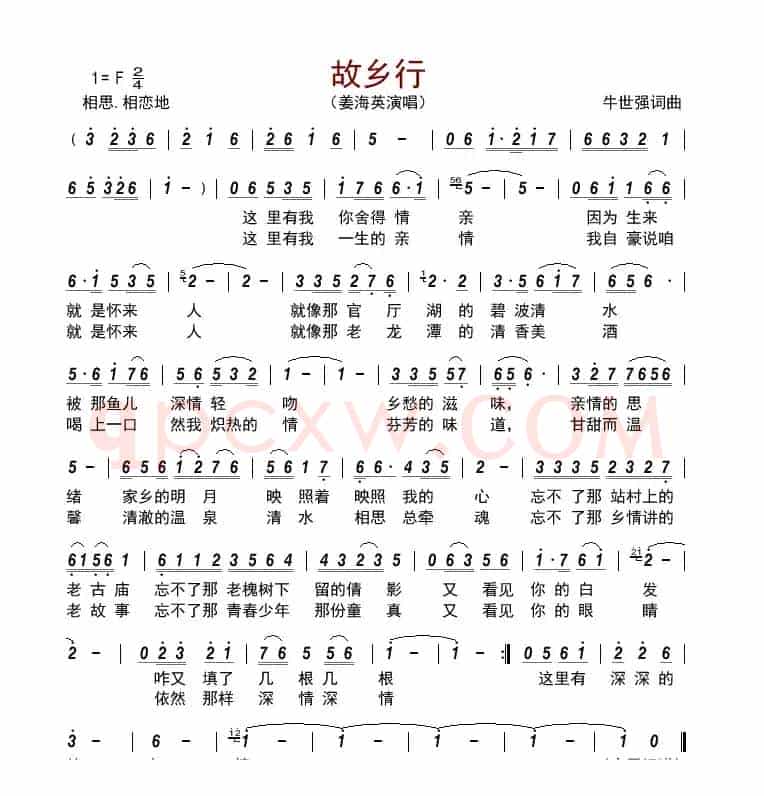 故乡行
1= F 2/4
相思.相恋地 （姜海英演唱） 牛世强词曲
( 3 2 3 6 | 2 1 6 | 2 6 1 6 | 5 - | 0 6 1· 2 1 7 | 6 1 6 5 |
6 5 3 3 2 6 | 1 - ) | 0 6 5 3 5 | 1 7 6 6·1 | 56 5 - | 5 - | 0 6 1 1 6 6 |
这 里有我 你舍得 情 亲 因为 生来
这 里有我 一生的 亲 情 我自 豪说咱
6·1 5 3 5 | 5 2 - | 2 - | 3 3 5 2 7 6 | 1 2· 2 | 3·5 6 1 6 5 | 6 5 6 · |
就 是怀来 人 就像那 官 厅 湖 的 碧 波清 水
就 是怀来 人 就像那 老 龙 潭 的 清 香美 酒
5·6 1 7 6 | 5 6 5 3 2 | 1 - | 1 - | 3 3 5 5 7 | 6 5 6 · | 3 2 7 7 6 5 6 |
被 那鱼儿 深情 轻 吻 乡愁的 滋 味， 亲情的 思
喝 上一口 然我 炽热的 情 芬芳的 味 道， 甘甜而 温
qpcxw.com
5 - | 6 5 6 1 2 7 6 | 5 6 1 7 | 6 6· 4 3 5 | 2 - | 3 3 3 5 2 3 2 7 |
绪 家乡的 明 月 映 照着 映照 我的 心 忘不 了那 站村上的
馨 清澈的 温 泉 清 水 相思 总牵 魂 忘不 了那 乡情讲的
6 1 5 6 1 | 6 1 1 2 3 5 6 4 | 3 4 3 2 3 5 | 0 6 3 5 6 | 1·7 6 1 | 21
老 古 庙 忘不了那 老槐树下 留的倩 影 又 看见 你 的 白 发
老 故 事 忘不了那 青春少年 那份童 真 又 看见 你 的 眼 睛
2 - | 0 2 3 2 1 | 7 6 5 5 6 | 1 - | 1 - :‖ 0 5 6 1 | 2 2 6 |
咋又 填了 几 根几 根 这里有 深深的
依然 那样 深 情深 情
3 - | 6 - | 12 1 - | 1 - | 1 - | 1 0 ‖